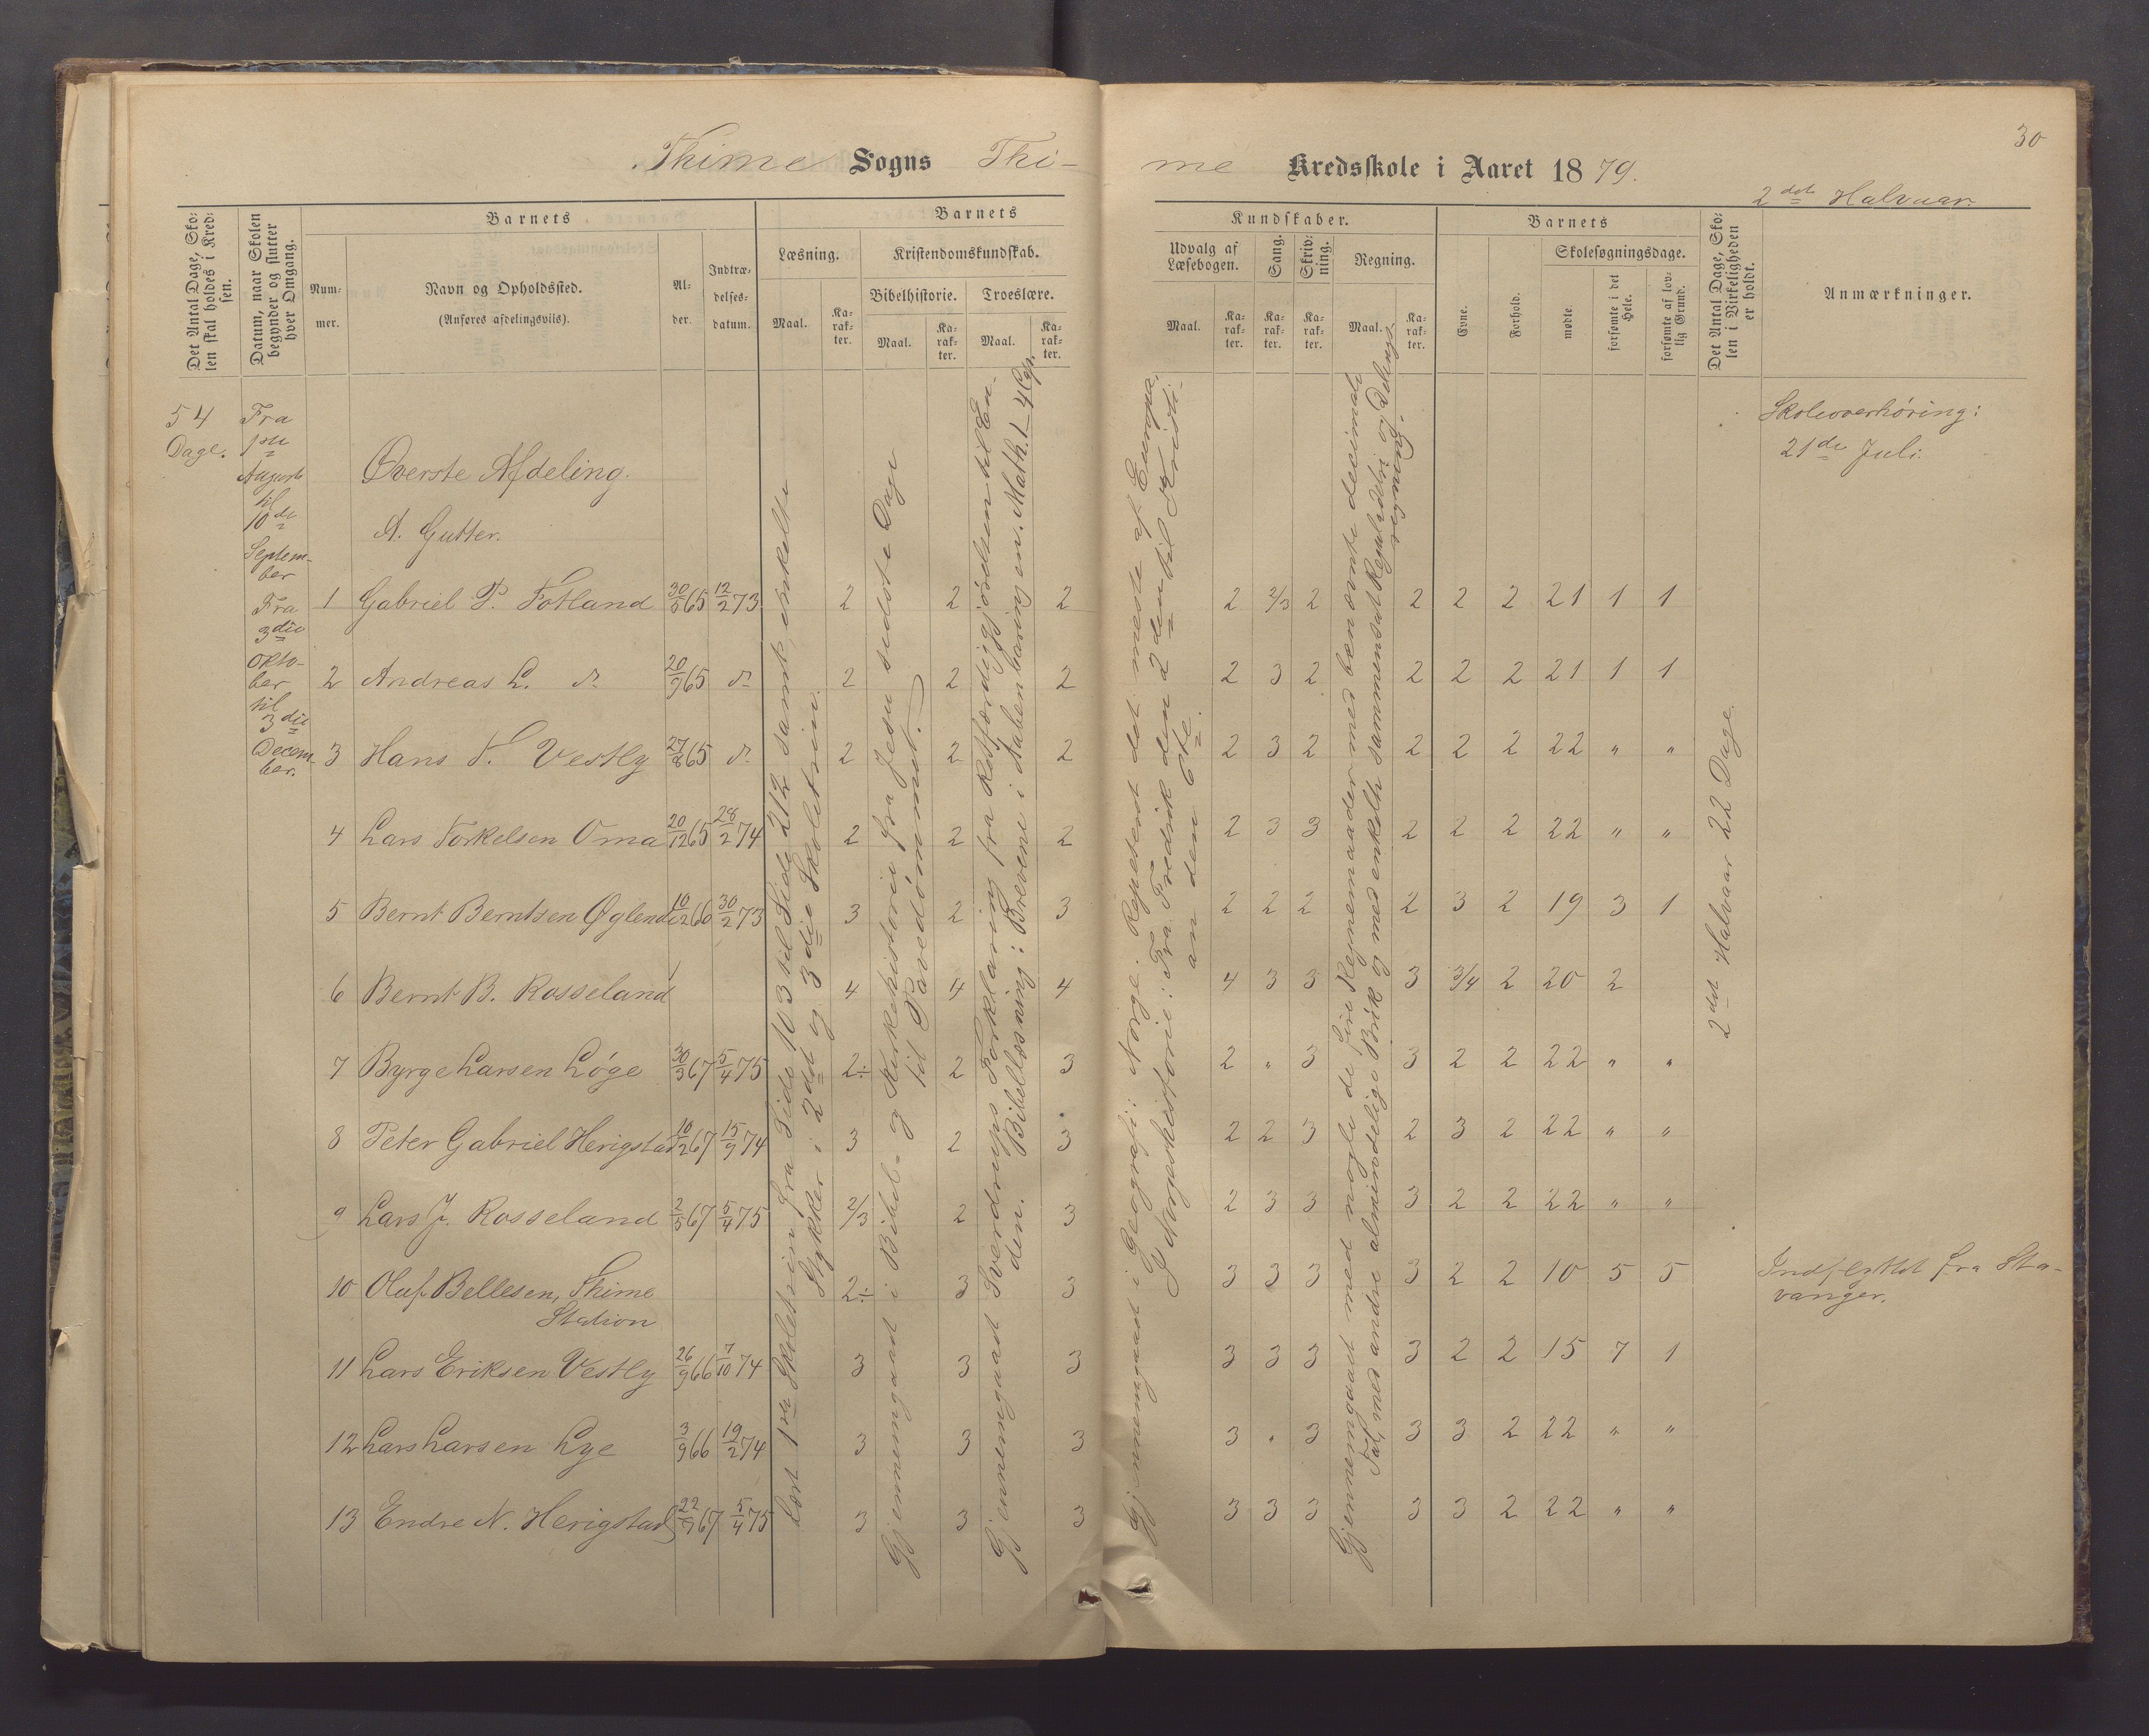 30
Thime Sogns Thi-
me Kredsskole i Aaret 1879.
2det Halvaar
Det Antal Dage, Sko-
len skal holdes i Kred-
sen.
Datum, naar Skolen
begynder og slutter
hver Omgang.
Barnets
Num-
mer.
Navn og Opholdssted.
(Anføres afdelingsviis).
Al-
der.
Indtræ-
delses-
datum.
Barnets
Læsning.
Maal.
Ka-
rak-
ter.
Kristendomskundskab.
Bibelhistorie.
Maal.
Ka-
rak-
ter.
Troeslære.
Maal.
Ka-
rak-
ter.
Kundskaber.
Udvalg af
Læsebogen.
Maal.
Ka-
rak-
ter.
Sang.
Ka-
rak-
ter.
Skriv-
ning.
Ka-
rak-
ter.
Regning.
Maal.
Ka-
rak-
ter.
Barnets
Evne.
Forhold.
Skolesøgningsdage.
mødte.
forsømte i det
Hele.
forsømte af lov-
lig Grund.
Det Antal Dage, Sko-
len i Virkeligheden
er holdt.
Anmærkninger.
54
Dage.
Fra
1ste
August
til
10de
Septem-
ber
Fra
3die
Okto-
ber
til
3die
Decem
ber.
Øverste Afdeling.
A. Gutter.
Skoleoverhøring:
21de Juli.
1 Gabriel P. Fotland 30/5 65 12/2 73 2 2 2 2 2/3 2 2 2 2 21 1 1
2 Andreas L. do 20/9 65 do 2 2 2 2 3 2 2 2 2 21 1 1
3 Hans T. Vestly 27/8 65 do 2 2 2 2 3 2 2 2 2 22 " "
4 Lars Torkelsen Oma 20/12 65 28/2 74 2 2 2 2 3 3 2 2 2 22 " "
5 Bernt Berntsen Øglend 10/2 66 30/2 73 3 2 3 2 2 2 2 3 2 19 3 1
6 Bernt B. Rosseland 4 4 4 4 3 3 3 3/4 2 20 2
7 Byrge Larsen Løge 30/3 67 5/4 75 2÷ 2 3 2 " 3 3 2 2 22 " "
8 Peter Gabriel Herigstad 10/2 67 15/9 74 3 2 3 2 2 3 2 3 2 22 " "
9 Lars J. Rosseland 2/5 67 5/4 75 2/3 2 3 2 3 3 3 2 2 22 " "
10 Oluf Bellesen, Thime
Station 2÷ 3 3 3 3 3 3 2 2 10 5 5 Indflyttet fra Sta-
vanger.
11 Lars Eriksen Vestly 26/9 66 7/10 74 3 3 3 3 3 3 3 2 2 15 7 1
12 Lars Larsen Lye 3/9 66 19/2 74 3 3 3 3 " 3 3 3 2 22 " "
13 Endre N. Herigstad 22/7 67 5/4 75 3 3 3 3 3 3 3 3 2 22 " "
Læst 1ste Skoletrin fra Side 103 til Side 212 samt enkelte
Stykker i 2det og 3die Skoletrin.
Gjennemgaaet i Bibel- og Kirkehistorie fra Jesu sidste Dage
til Pavedømmet.
Gjennemgaaet Sverdrups Forklaring fra Retfærdiggjørelsen til En-
den. Bibellæsning: Brevene i Aabenbaringen. Math. 1-4 Cap.
Gjennemgaaet i Geografi: Norge. Repeteret det meste af Europa.
I Norgeshistorie: Fra Fredrik den 2den til Kristi-
an den 6te.
Gjennemgaaet med nogle de fire Regnemaader med benævnte decimale
Tal, med andre almindelige Brøk og med enkelte sammensat Reguladetri og Delings-
regning.
2det Halvaar 22 Dage.